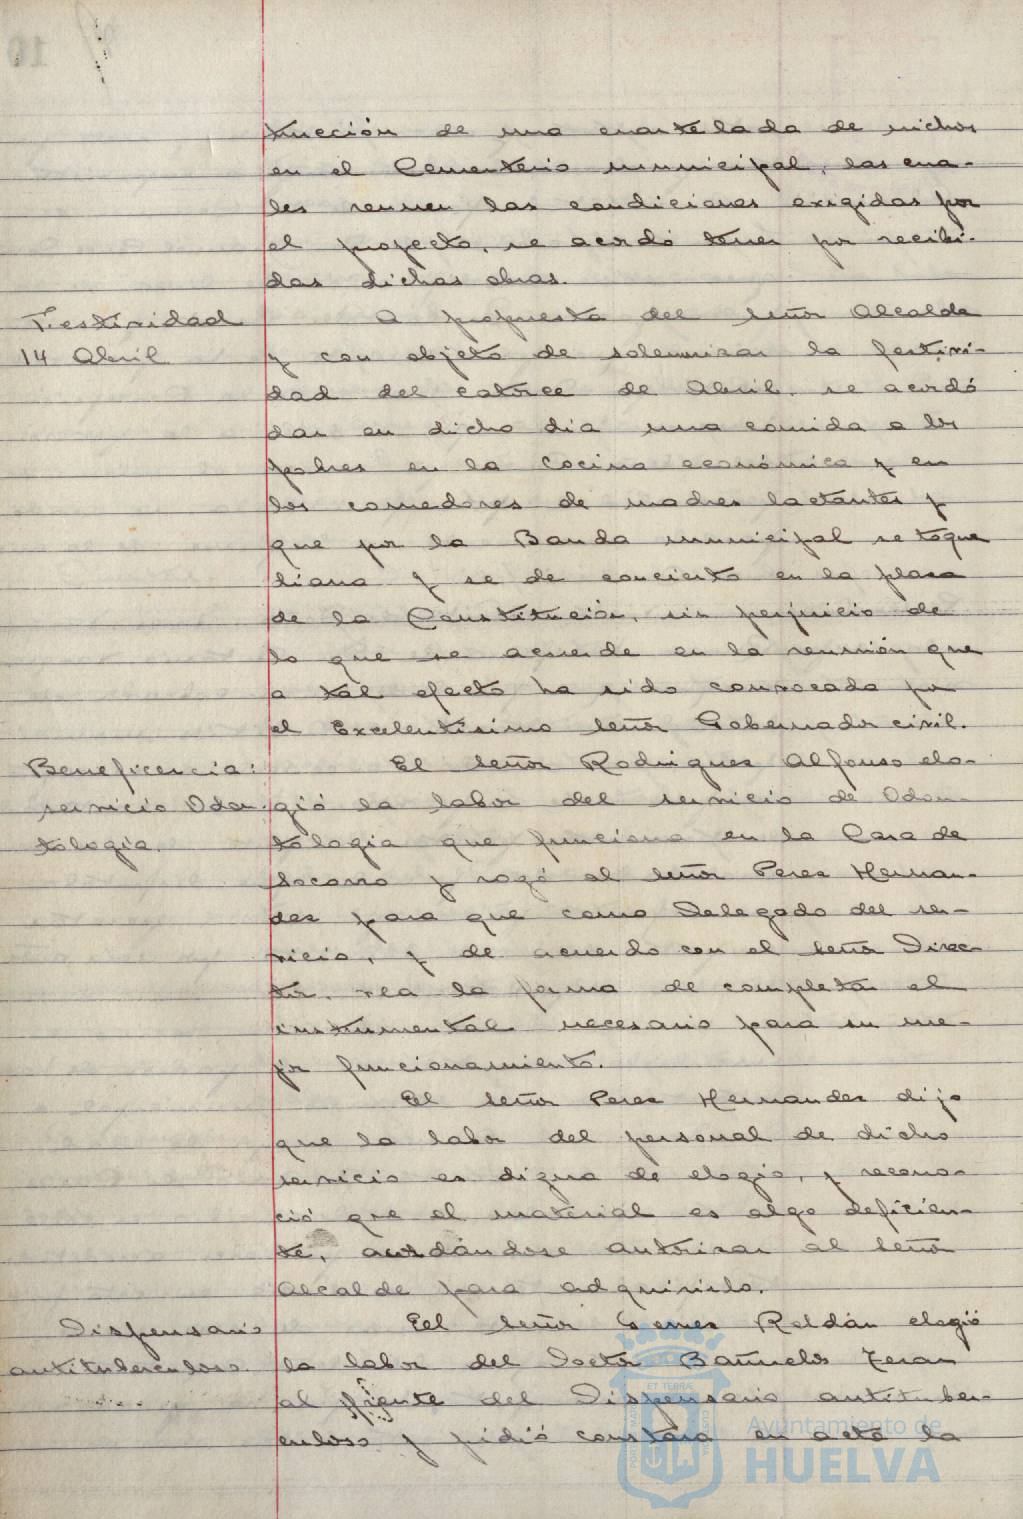 trucción de una cuartelada de nichos
en el Cementerio municipal, las cua-
les reunen las condiciones exigidas por
el proyecto, se acordó tener por recibi-
das dichas obras.
Festividad
14 Abril
A propuesta del señor Alcalde
y con objeto de solemnizar la festivi-
dad del catorce de Abril, se acordó
dar en dicho dia una comida a los
pobres en la Cocina económica y en
los comedores de madres lactantes y
que por la Banda municipal se toque
diana y se de concierto en la plaza
de la Constitución, sin perjuicio de
lo que se acuerde en la reunión que
a tal efecto ha sido convocada por
el Excelentisimo señor Gobernador civil.
Beneficencia:
servicio Odon-
tologia.
El señor Rodriguez Alfonso elo-
gió la labor del servicio de Odon-
tologia que funciona en la Casa de
Socorro y rogó al señor Perez Hernan-
dez para que como Delegado del ser-
vicio, y de acuerdo con el señor Direc-
tor, vea la forma de completar el
instrumental necesario para su me-
jor funcionamiento.
El señor Perez Hernandez dijo
que la labor del personal de dicho
servicio es digna de elogio, y recono-
ció que el material es algo deficien-
te, acordándose autorizar al señor
Alcalde para adquirirlo.
Dispensario
antituberculoso
El señor Gomez Roldán elogió
la labor del Doctor Bañuelos Teran
al frente del Dispensario antituber-
culoso y pidió constara en acta la
Ayuntamiento de
HUELVA